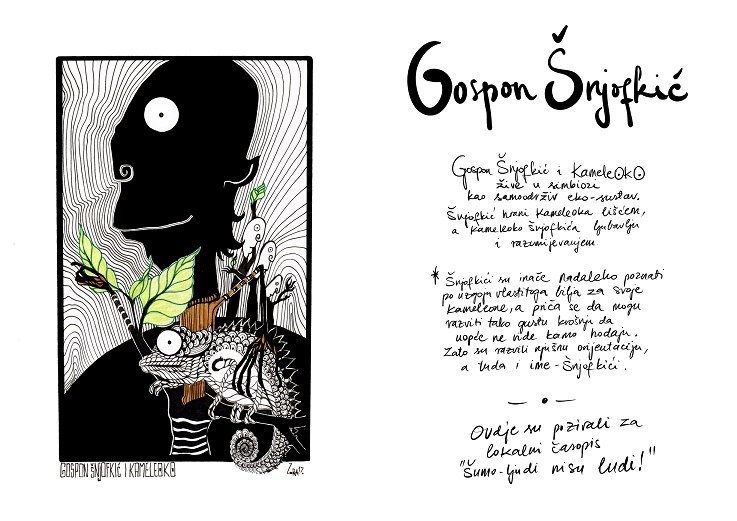 GOSPON ŠNJOFKIĆ I KAMELEOKO
Gospon Šnjofkić
Gospon Šnjofkić i KameleOkO
žive u simbiozi
kao samoodrživ eko-sustav.
Šnjofkić hrani kameleoka lišćem,
a kameleoko Šnjofkića ljubavlju
i razumijevanjem.
* Šnjofkići su inače nadaleko poznati
po uzgoju vlastitoga bilja za svoje
kameleone, a priča se da mogu
razviti tako gustu krošnju da
uopće ne vide kamo hodaju.
Zato su razvili njušnu orijentaciju,
a tuda i ime - Šnjofkići.
Ovdje su pozirali za
lokalni časopis
"Šumo-ljudi nisu ludi!"